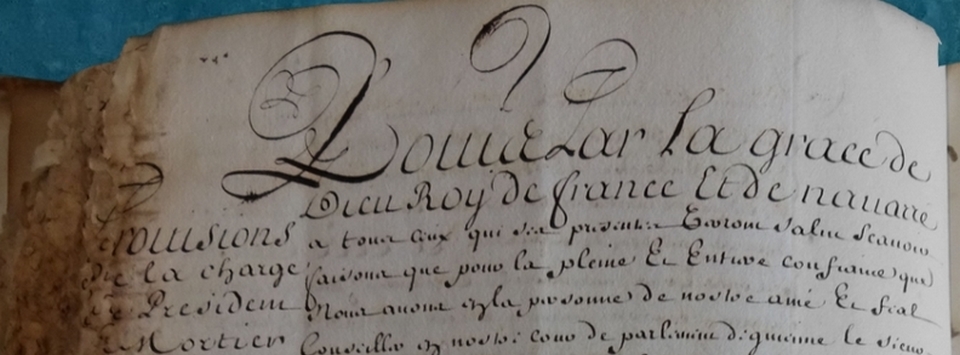 Louis Par la grace de
Dieu Roy de france Et de navarre
Provisions
de la charge
de President
Mortier
a tous ceux qui ces presentes Verront salut scavoir
faisons que pour la pleine Et Entiere confiance que
Nous avons en la personne de nostre amé Et feal
Conseiller en nostre cour de parlement de guienne le sieur